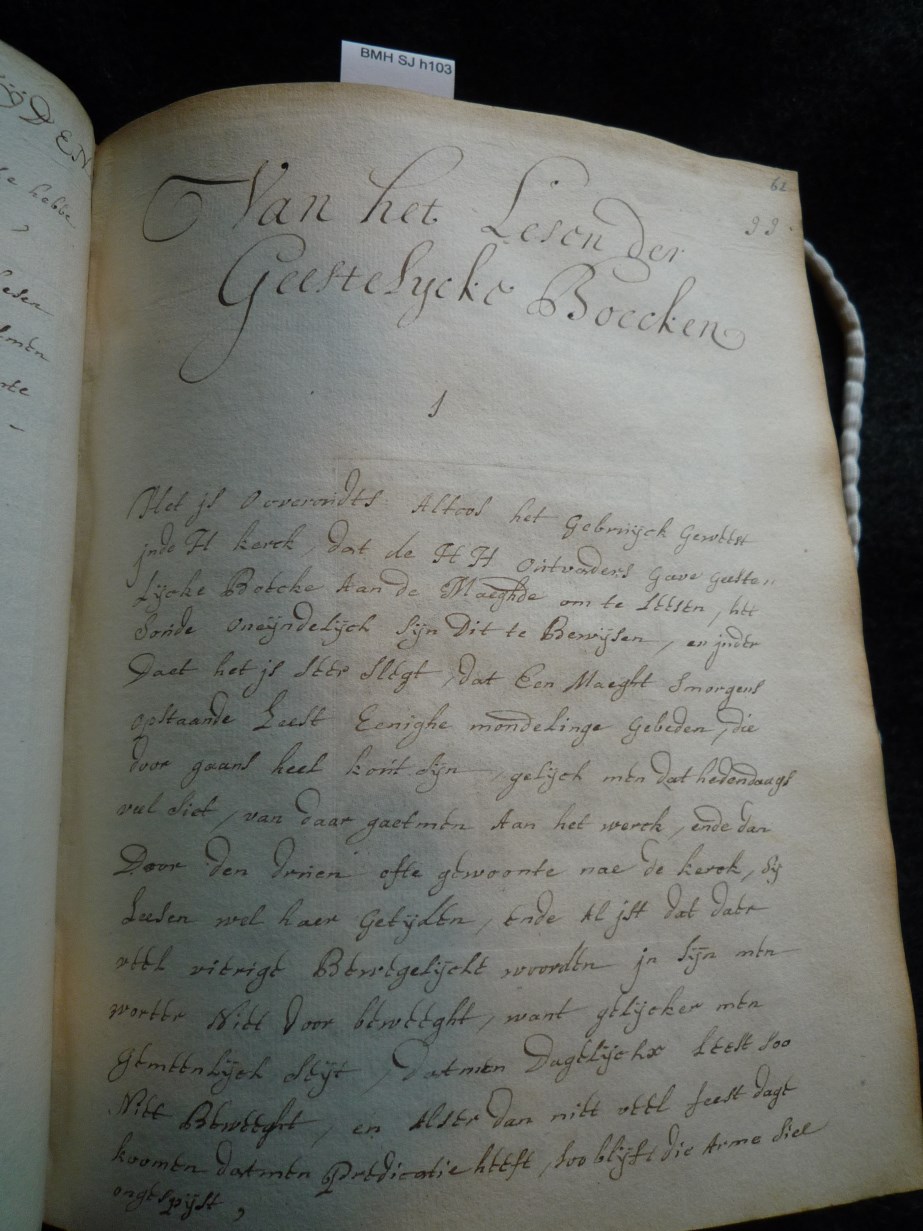 BMH SJ h103
ÿDEN
hebbe
,
lesen
men
rte
62
99.
Van het Lesen der
Geestelycke Boecken
1
Het js Altoos het Gebruyck Geweest
jnde H kerck, dat de HH outvaders Gave Geeste
Lycke Boecke Aan de Maeghde om te Leesen, het
Soude oneÿndelÿck Sÿn Dit te Bewÿsen, en jnder
Daet het js Seer Slegt, dat Een Maeght Smorgens
opstaande Leest Eenighe mondelinge Gebeden, die
door gaans heel kort Sÿn, gelÿck men dat hedendaags
veel Siet, van daar gaetmen Aan het werck, ende dan
Door den ofte gewoonte nae de kerck, Sÿ
Leesen wel haer Getÿden, Ende Al jst dat daer
veel vierige Beweegelÿcke woorden jn Sÿn men
worter Niet door beweeght, want gelÿcker men
Gemeenlÿck Seÿt, Datmen Dagelÿchx Leest Soo
Niet Beweeght, en Alser dan niet veel feest dage
koomen datmen Predicatie heeft, Soo blÿft die Arme Siel
ongespÿst,